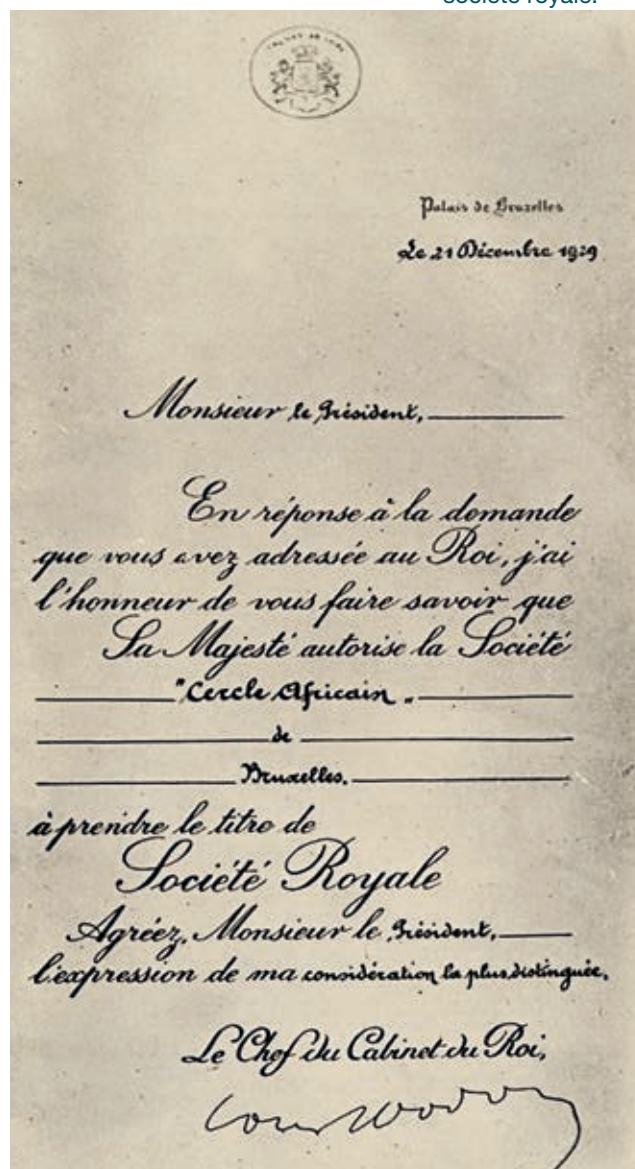 société royale.
Palais de Bruxelles
Le 21 Décembre 1929
Monsieur le Président,
En réponse à la demande
que vous avez adressée au Roi, j'ai
l'honneur de vous faire savoir que
Sa Majesté autorise la Société
"Cercle Africain"
de
Bruxelles.
à prendre le titre de
Société Royale
Agréez, Monsieur le Président,
l'expression de ma considération la plus distinguée.
Le Chef du Cabinet du Roi,